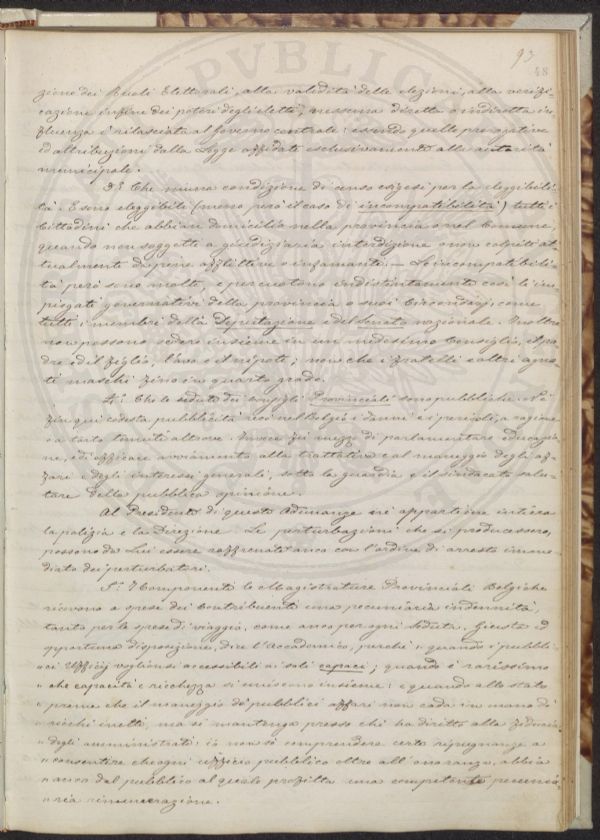 93
48
zione dei Ruoli Elettorali, alla validità delle elezioni, alla verifi-
cazione infine dei poteri degli eletti, nessuna diretta o indiretta in-
fluenza è rilasciata al Governo centrale: essendo quelle prerogative
ed attribuzioni dalla Legge affidate esclusivamente alle autorità
municipale.
3.° Che niuna condizione di censo esigesi per la eleggibili-
tà. E sono eleggibili (meno però il caso di incompatibilità) tutti i
Cittadini che abbian domicilio nella provincia o nel Comune,
quando non soggetti a giudiziaria interdizione o non colpiti at-
tualmente da pene afflittive o infamanti. — Le incompatibili-
tà però sono molte, e percuotono indistintamente così li im-
piegati governativi della provincia o suoi Circondarj, come
tutti i membri della Deputazione e del Senato nazionale. Inoltre
non possono sedere insieme in un medesimo Consiglio, il pa-
dre ed il figlio, l'avo e il nipote; non che i fratelli e altri agna-
ti maschi fino in quarto grado.
4.° Che le sedute dei Consigli Provinciali sono pubbliche. Nè
fin qui codesta pubblicità recò nel Belgio i danni e i pericoli, a ragione
o a torto temuti altrove. Invece fu mezzo di parlamentare educazio-
ne, e di efficace avviamento alla trattativa e al maneggio degli af-
fari e degli interessi generali, sotto la guardia e il sindacato salu-
tare della pubblica opinione.
Al Presidente di queste Adunanze ne appartiene intiera
la polizia e la Direzione. Le perturbazioni che si producessero,
possono da Lui essere raffrenate anco con l'ordine di arresto imme-
diato dei perturbatori.
5.° I Componenti le Magistrature Provinciali Belgiche
ricevono a spese dei Contribuenti una pecuniaria indennità,
tanto per le spese di viaggio, come anco per ogni Seduta. Giusta ed
opportuna disposizione, dice l'Accademico, perchè "quando i pubbli-
"ci Ufficij voglionsi accessibili ai soli capaci; quando è rarissimo
"che capacità e ricchezza si uniscono insieme: e quando allo stato
"preme che il maneggio de' pubblici affari non cada in mano di
"ricchi inetti, ma si mantenga presso chi ha diritto alla fiducia
"degli amministrati: io non sò comprendere certe ripugnanze a
"consentire che ogni ufficio pubblico oltre all'onoranza, abbia
"anco dal pubblico al quale profitta una competente pecunia-
"ria rimunerazione.